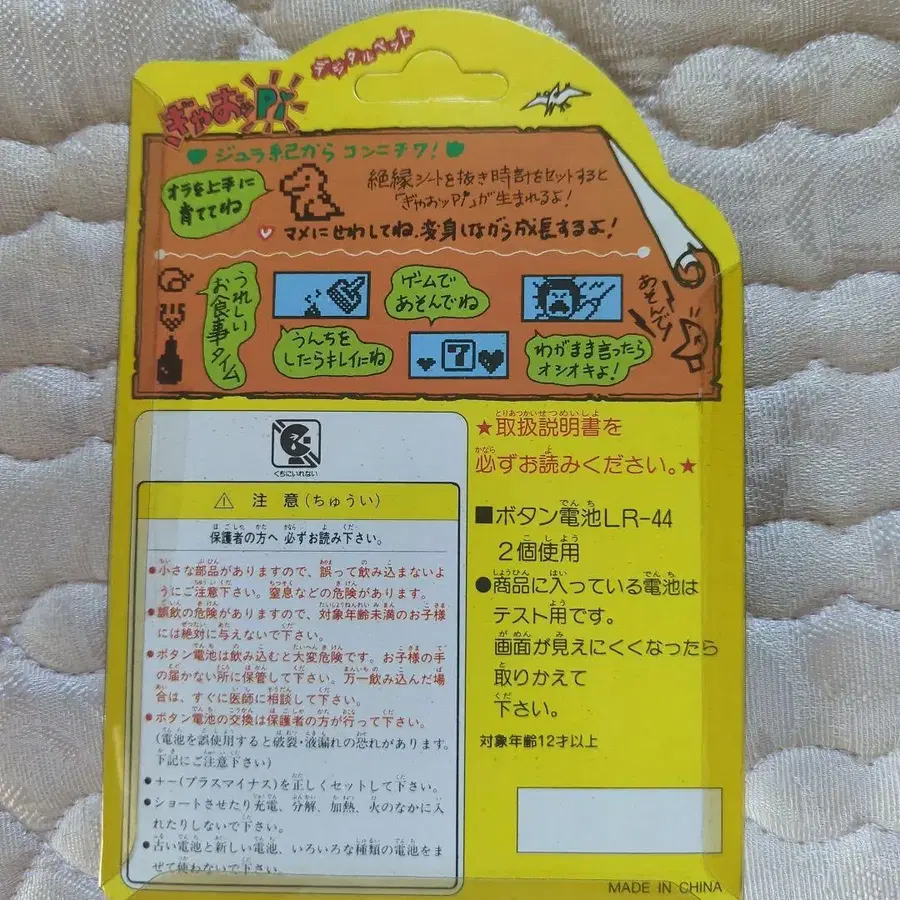 デジタルペット
ぎゃおッPi
ジュラ紀からコンニチワ!
オラを上手に
育ててね
絶縁シートを抜き時計をセットすると
「ぎゃおッPi」が生まれるよ!
マメにせわしてね、変身しながら成長するよ!
うれしい
お食事タイム
うんちを
したらキレイにね
ゲームで
あそんでね
7
わがまま言ったら
オシオキよ!
あそんで!
くちにいれない
⚠ 注意(ちゅうい)
保護者の方へ 必ずお読み下さい。
●小さな部品がありますので、誤って飲み込まないよ
うにご注意下さい。窒息などの危険があります。
●誤飲の危険がありますので、対象年齢未満のお子様
には絶対に与えないで下さい。
●ボタン電池は飲み込むと大変危険です。お子様の手
の届かない所に保管して下さい。万一飲み込んだ場
合は、すぐに医師に相談して下さい。
●ボタン電池の交換は保護者の方が行って下さい。
(電池を誤使用すると破裂・液漏れの恐れがあります。
下記にご注意下さい)
●+−(プラスマイナス)を正しくセットして下さい。
●ショートさせたり充電、分解、加熱、火のなかに入
れたりしないで下さい。
●古い電池と新しい電池、いろいろな種類の電池をま
ぜて使わないで下さい。
とりあつかいせつめいしょ
★取扱説明書を
必ずお読みください。★
■ボタン電池LR-44
2個使用
●商品に入っている電池は
テスト用です。
画面が見えにくくなったら
取りかえて
下さい。
対象年齢12才以上
MADE IN CHINA